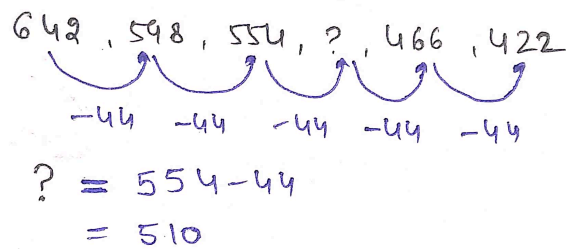 642, 598, 554, ?, 466, 422
-44 -44 -44 -44 -44
? = 554-44
= 510